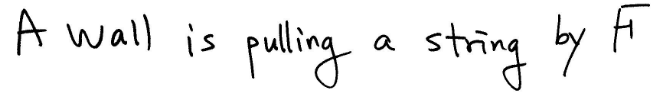 A wall is pulling a string by F